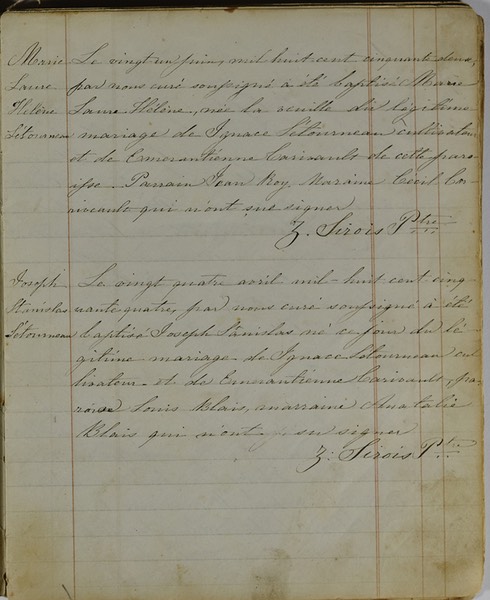 Marie Laure Hélène Létourneau
Le vingt un juin, mil huit cent cinquante deux,
par nous curé soussigné a été baptisé Marie
Laure Hélène, née la veille du légitime
mariage de Ignace Létourneau cultivateur
et de Emerantienne Carivault de cette paro-
isse. Parrain Jean Roy, Maraine Cécil Co-
riveault qui n'ont sue signer
Z. Sirois Ptre
Joseph Stanislas Létourneau
Le vingt quatre avril mil-huit cent cinq-
uante quatre, par nous curé soussigné a été
baptisé Joseph Stanislas né ce jour du lé-
gitime mariage de Ignace Létourneau cul-
tivateur et de Emerantienne Carivault, par-
rain Louis Blais, marraine Anatalie
Blais qui n'ont su signer
Z: Sirois Ptre